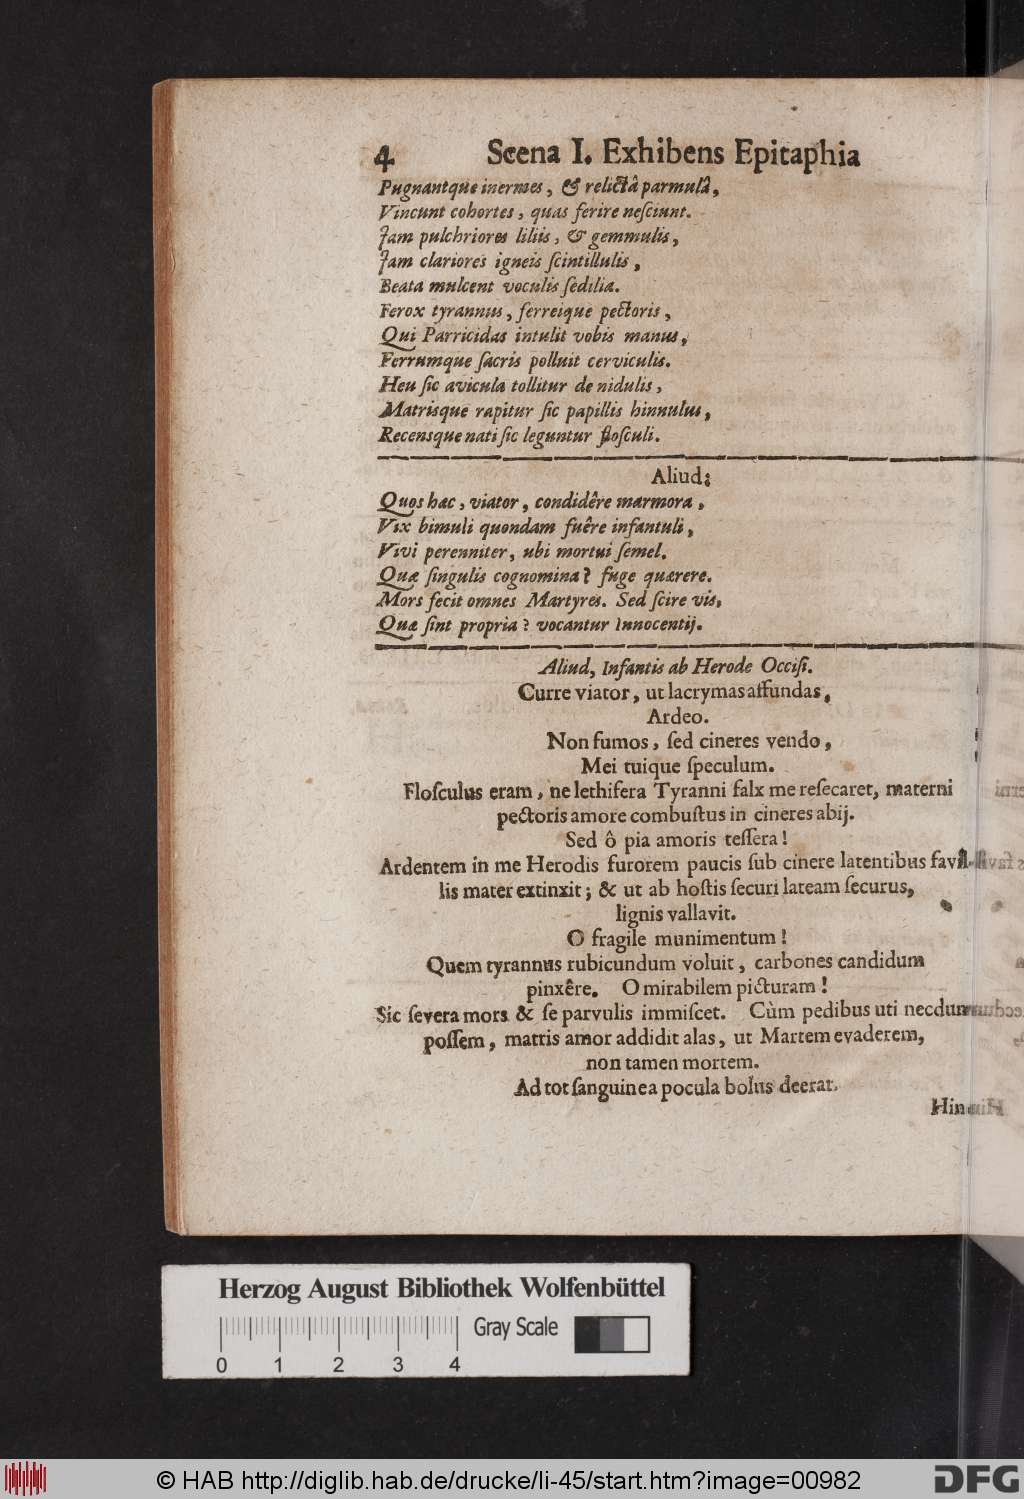 4 Scena I. Exhibens Epitaphia
Pugnantque inermes, & relictâ parmulâ,
Vincunt cohortes, quas ferire neſciunt.
Jam pulchriores liliis, & gemmulis,
Jam clariores igneis ſcintillulis,
Beata mulcent voculis ſedilia.
Ferox tyrannus, ferreique pectoris,
Qui Parricidas intulit vobis manus,
Ferrumque ſacris polluit cerviculis.
Heu ſic avicula tollitur de nidulis,
Matrisque rapitur ſic papillis hinnulus,
Recensque nati ſic leguntur floſculi.
Aliud;
Quos hac, viator, condidêre marmora,
Vix bimuli quondam fuêre infantuli,
Vivi perenniter, ubi mortui ſemel.
Quæ ſingulis cognomina? fuge quærere.
Mors fecit omnes Martyres. Sed ſcire vis,
Quæ ſint propria? vocantur Innocentij.
Aliud, Infantis ab Herode Occiſi.
Curre viator, ut lacrymas affundas,
Ardeo.
Non fumos, ſed cineres vendo,
Mei tuique ſpeculum.
Floſculus eram, ne lethifera Tyranni falx me reſecaret, materni
pectoris amore combuſtus in cineres abij.
Sed ô pia amoris teſſera!
Ardentem in me Herodis furorem paucis ſub cinere latentibus favil-
lis mater extinxit; & ut ab hoſtis ſecuri lateam ſecurus,
lignis vallavit.
O fragile munimentum!
Quem tyrannus rubicundum voluit, carbones candidum
pinxêre. O mirabilem picturam!
Sic ſevera mors & ſe parvulis immiſcet. Cùm pedibus uti necdum
poſſem, matris amor addidit alas, ut Martem evaderem,
non tamen mortem.
Ad tot ſanguinea pocula bolus deerat.
Hin
Herzog August Bibliothek Wolfenbüttel
Gray Scale
0 1 2 3 4
© HAB http://diglib.hab.de/drucke/li-45/start.htm?image=00982
DFG